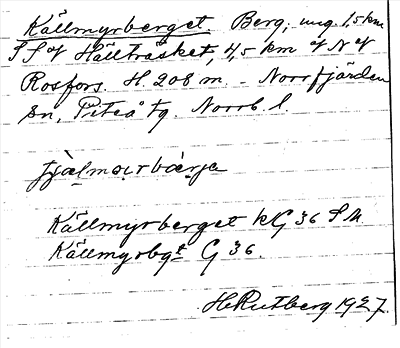 Källmyrberget Berg; ung. 1,5 km
S S of Hällträsket, 4,5 km of N of
Rosfors. H. 208 m. - Norrfjärden
Sn, Piteå tg. Norrb. l.
Källmyrberget kG 36 S M.
Källmyrbgt G 36.
H. Rutberg 1927.